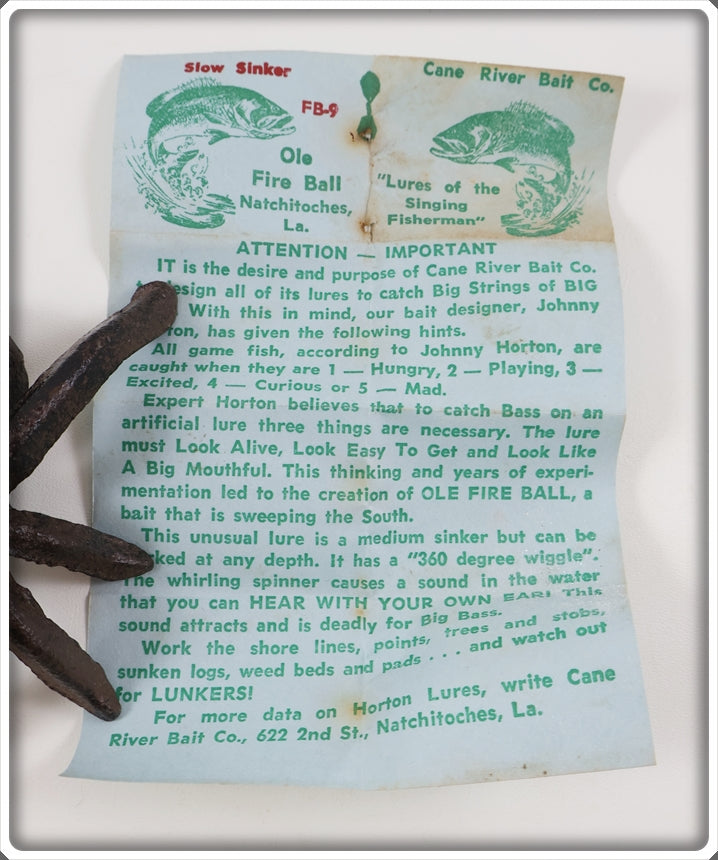 Slow Sinker
FB-9
Ole
Fire Ball
Natchitoches,
La.
Cane River Bait Co.
"Lures of the
Singing
Fisherman"
ATTENTION — IMPORTANT
IT is the desire and purpose of Cane River Bait Co.
all of its lures to catch Big Strings of BIG
With this in mind, our bait designer, Johnny
has given the following hints.
All game fish, according to Johnny Horton, are
caught when they are 1 — Hungry, 2 — Playing, 3 —
Excited, 4 — Curious or 5 — Mad.
Expert Horton believes that to catch Bass on an
artificial lure three things are necessary. The lure
must Look Alive, Look Easy To Get and Look Like
A Big Mouthful. This thinking and years of experi-
mentation led to the creation of OLE FIRE BALL, a
bait that is sweeping the South.
This unusual lure is a medium sinker but can be
at any depth. It has a "360 degree wiggle".
The whirling spinner causes a sound in the water
that you can HEAR WITH YOUR OWN EAR! This
sound attracts and is deadly for Big Bass.
Work the shore lines, points, trees and stobs,
sunken logs, weed beds and pads . . . and watch out
for LUNKERS!
For more data on Horton Lures, write Cane
River Bait Co., 622 2nd St., Natchitoches, La.